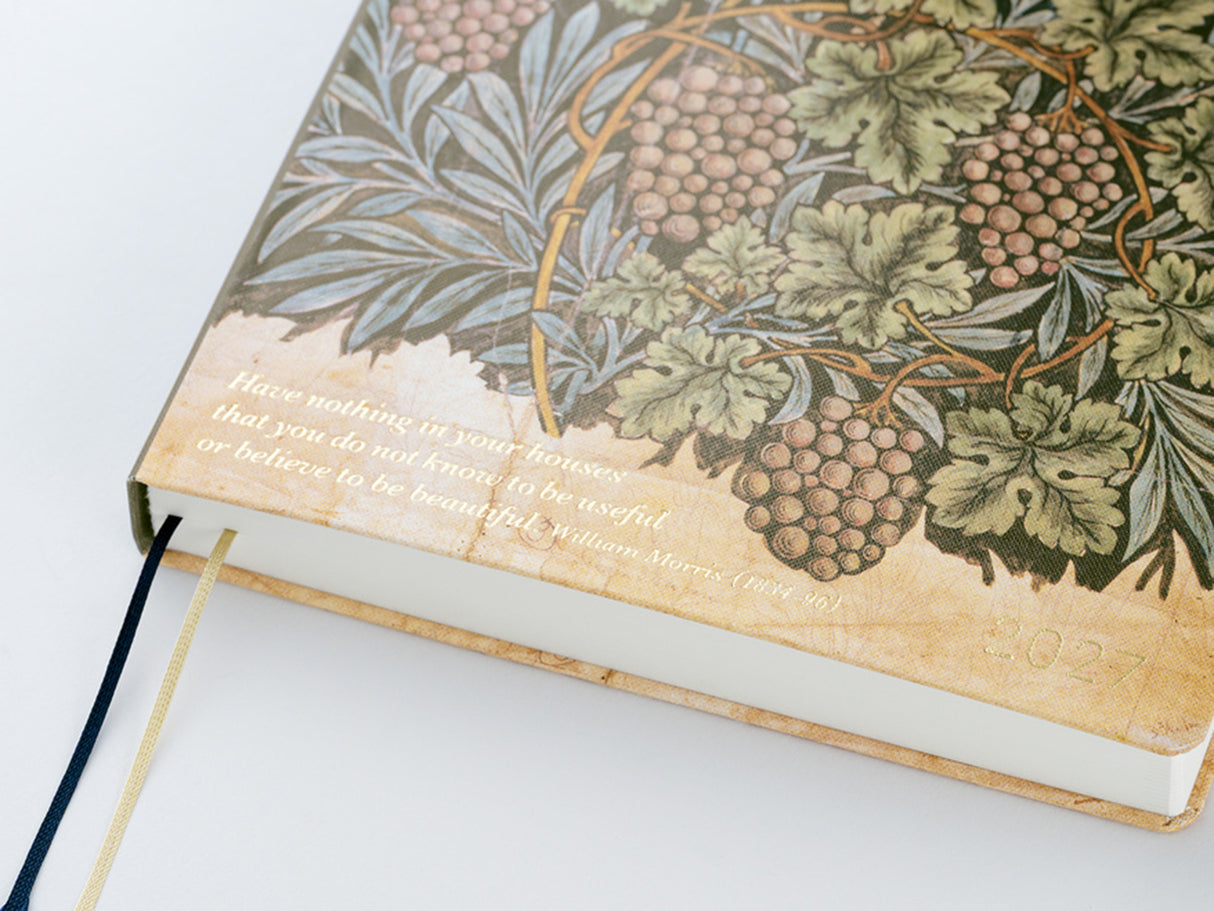 Have nothing in your houses
that you do not know to be useful
or believe to be beautiful. William Morris (1834-96)
2027